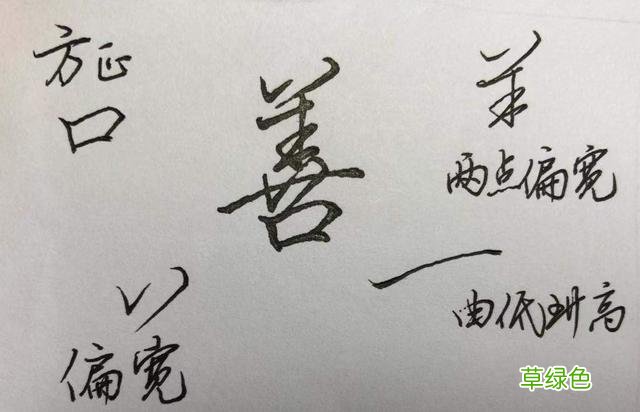 方正
口
善
羊
两点偏宽
一
由低到高
偏宽
草绿色